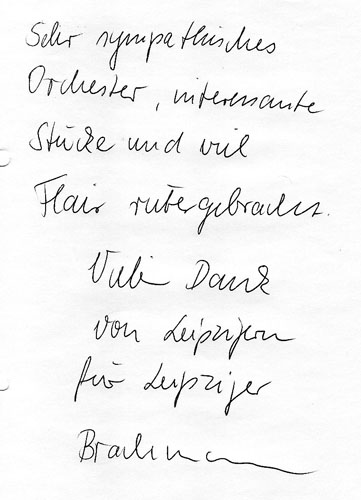 Sehr sympathisches
Orchester, interessante
Stücke und viel
Flair rübergebracht.
Vielen Dank
von Leipzigern
für Leipziger